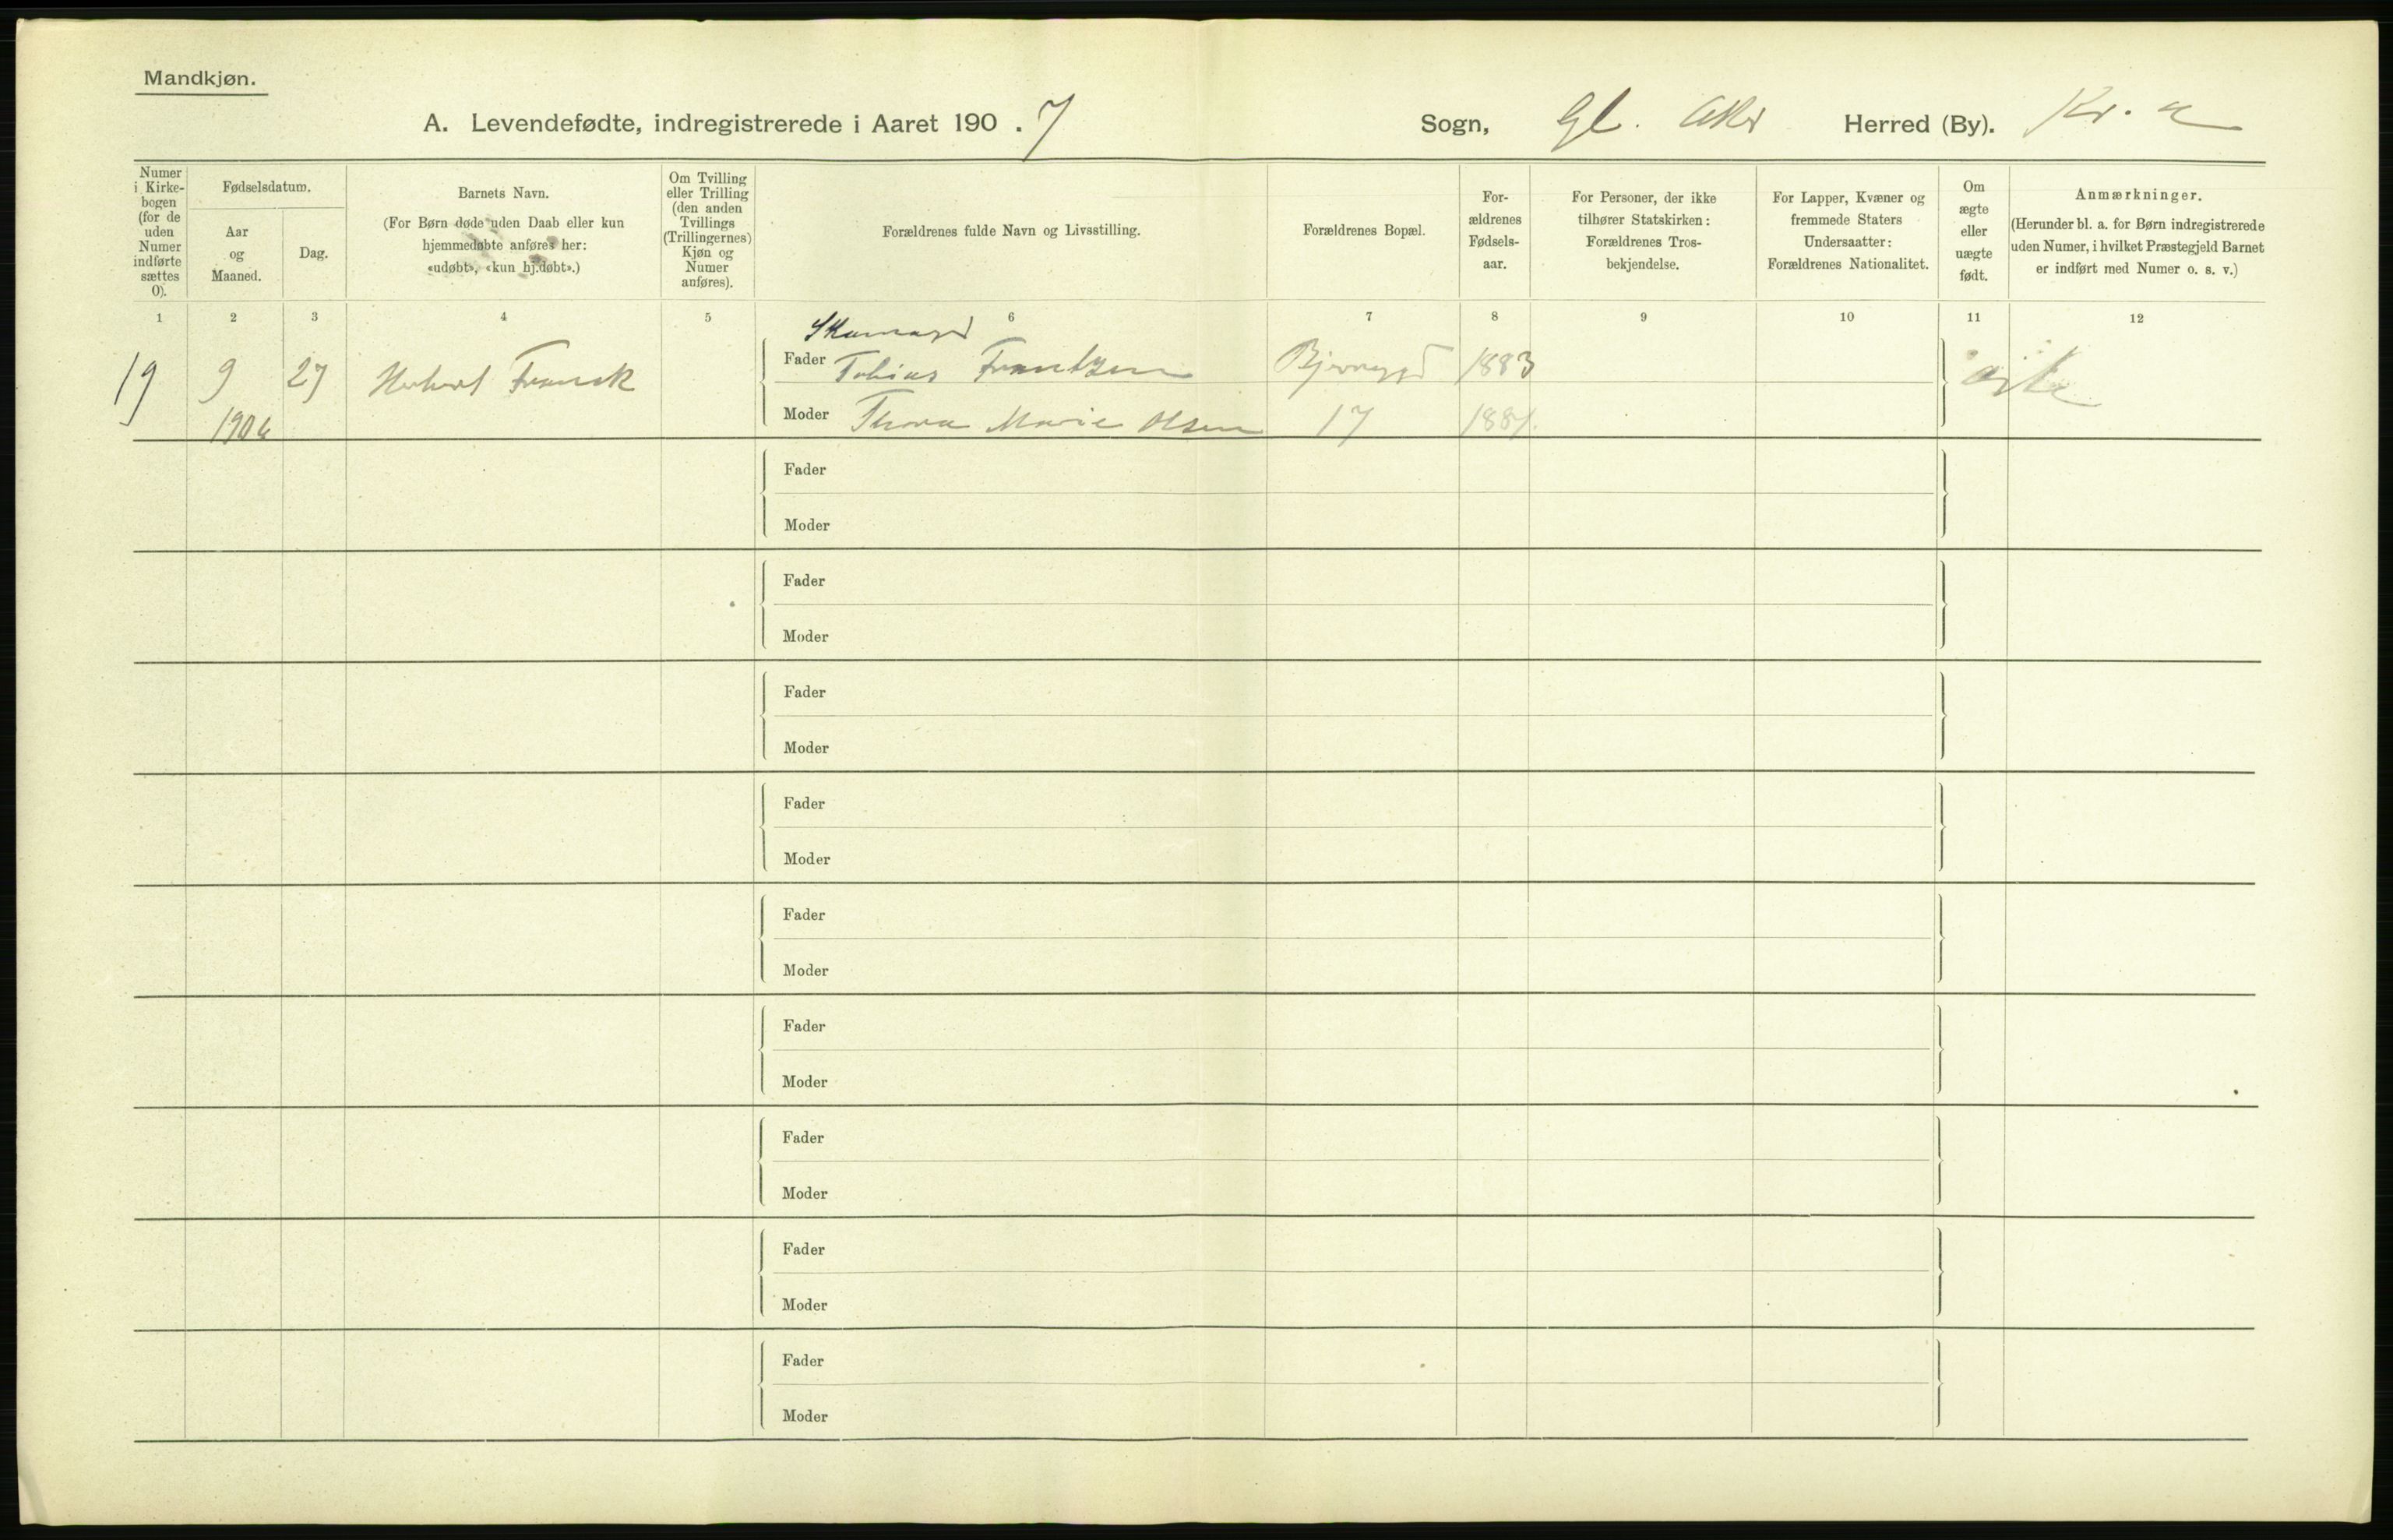 Mandkjøn.
A. Levendefødte, indregistrerede i Aaret 190 . 7 Sogn, Gl. Aker Herred (By). Kr. a
Numer i Kirkebogen (for de uden Numer indførte sættes 0).
Fødselsdatum.
Aar og Maaned.
Dag.
Barnets Navn.
(For Børn døde uden Daab eller kun
hjemmedøbte anføres her:
«udøbt», «kun hj.døbt».)
Om Tvilling
eller Trilling
(den anden
Tvillings
(Trillingernes)
Kjøn og
Numer
anføres).
Forældrenes fulde Navn og Livsstilling.
Forældrenes Bopæl.
For-
ældrenes
Fødsels-
aar.
For Personer, der ikke
tilhører Statskirken:
Forældrenes Tros-
bekjendelse.
For Lapper, Kvæner og
fremmede Staters
Undersaatter:
Forældrenes Nationalitet.
Om
ægte
eller
uægte
født.
Anmærkninger.
(Herunder bl. a. for Børn indregistrerede
uden Numer, i hvilket Præstegjeld Barnet
er indført med Numer o. s. v.)
1 2 3 4 5 6 7 8 9 10 11 12
19 9 27 Herbert Franck Fader Tobias Frantzen 1883 ægte
1906 Moder Thora Marie Olsen 17 1881.
Fader
Moder
Fader
Moder
Fader
Moder
Fader
Moder
Fader
Moder
Fader
Moder
Fader
Moder
Fader
Moder
Fader
Moder